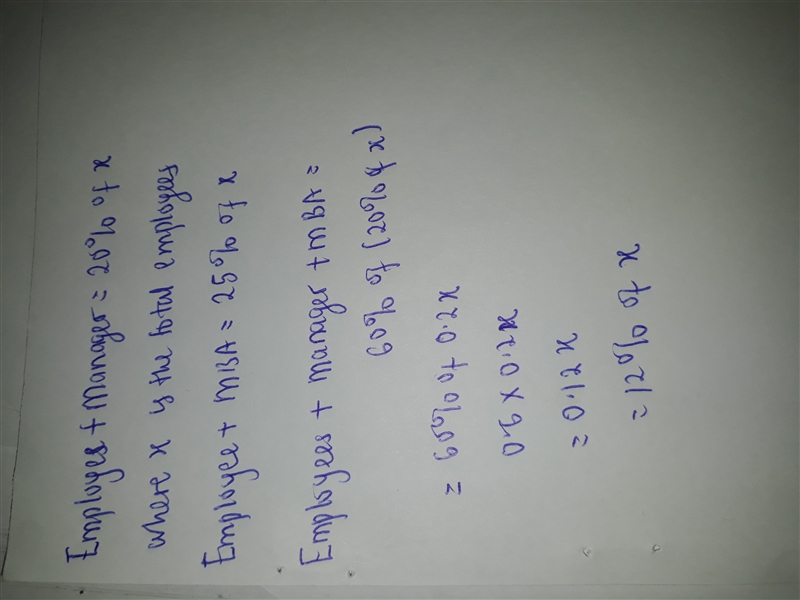 Employes + Manager = 20% of x
where x is the total employees
Employee + MBA = 25% of x
Employees + Manager + MBA =
60% of (20% of x)
= 60% of 0.2x
0.6 x 0.2x
= 0.12x
= 12% of x